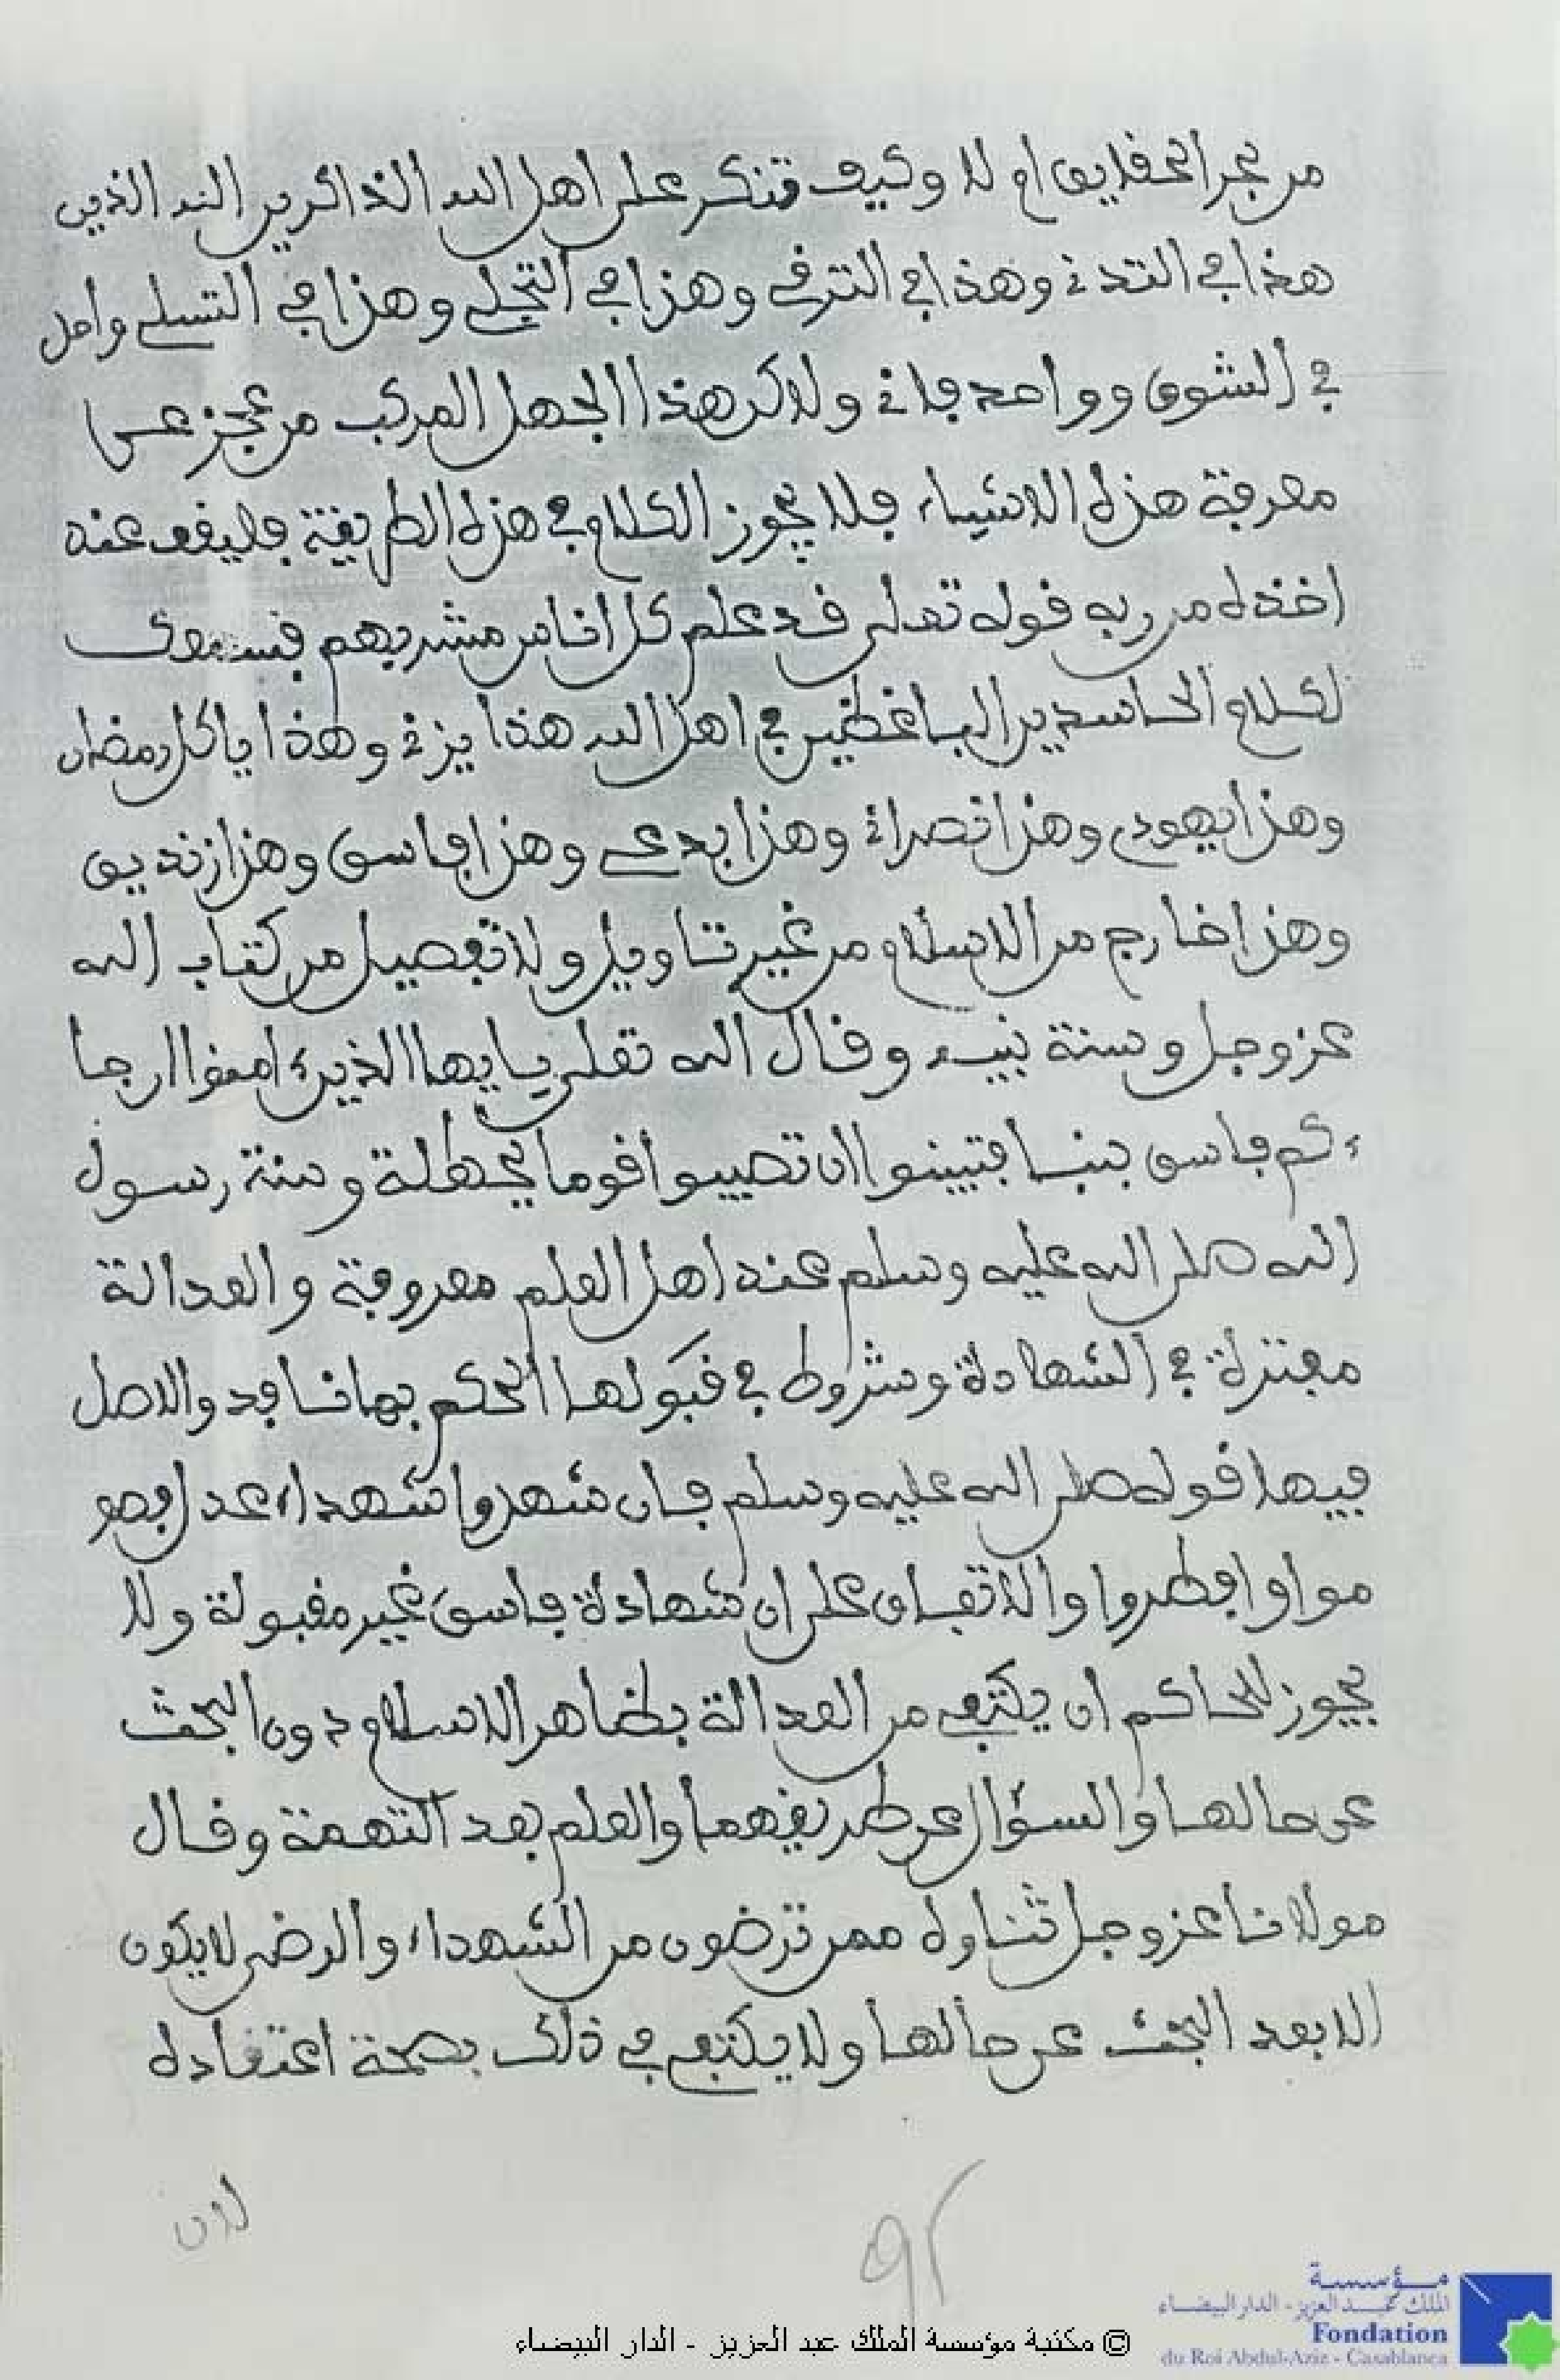 من بحر الحقايق ام لا وكيف تنكر على اهل الله الذاكرين الله الذين
هذا في التدني وهذا في الترقي وهذا في التجلي وهذا في التسلي واحد
في الشوق وواحد فاني ولاكن هذا الجهل المركب من عجز عن
معرفة هذه الاشياء فلا يجوز الكلام في هذه الطريقة فليقف عند
اخذه من ربه قوله تعلى قد علم كل اناس مشربهم
لكلام الحاسدين الباغظين في اهل الله هذا يزني وهذا ياكل رمضان
وهذا يهودي وهذا نصراني وهذا بدعي وهذا فاسق وهذا زنديق
وهذا خارج من الاسلام من غير تاويل ولا تفصيل من كتاب الله
عز وجل وسنة نبيه وقال الله تعلى يايها الذين ءامنوا ان جا
ءكم فاسق بنبا فتبينوا ان تصيبوا قوما بجهلة وسنة رسول
الله صلى الله عليه وسلم عند اهل العلم معروفة والعدالة
معتزلة في الشهادة وشروط في قبولها الحكم بها نافد والاصل
فيها قوله صلى الله عليه وسلم فان شهدوا شهداء عدل فصو
موا وافطروا والاتفاق على ان شهادة فاسق غير مقبولة ولا
يجوز للحاكم ان يكتفي من العدالة بظاهر الاسلام دون البحث
عن حالها والسؤال عن طريقهما والعلم بعد التهمة وقال
مولانا عز وجل ثناوه ممن ترضون من الشهداء والرضى لا يكون
الا بعد البحث عن حالها ولا يكتفي في ذلك بصحة اعتقاده
لان
٩٢
© مكتبة مؤسسة الملك عبد العزيز - الدار البيضاء
مؤسسة
الملك عبد العزيز - الدار البيضاء
Fondation
du Roi Abdul-Aziz - Casablanca